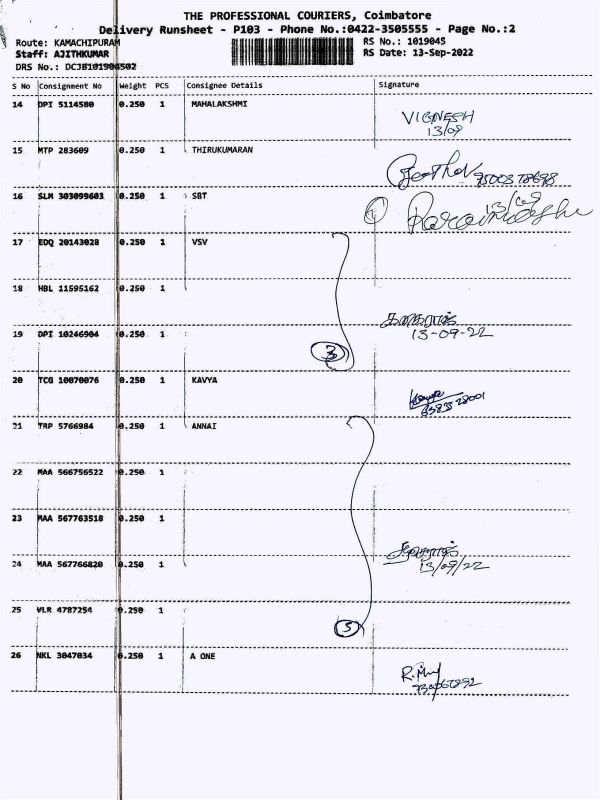 THE PROFESSIONAL COURIERS, Coimbatore
Delivery Runsheet - P103 - Phone No.:0422-3505555 - Page No.:2
Route: KAMACHIPURAM
RS No.: 1019045
Staff: AJITHKUMAR
RS Date: 13-Sep-2022
DRS No.: DCJB101904502
S No Consignment No Weight PCS Consignee Details Signature
14 DPI 5114580 0.250 1 MAHALAKSHMI
VIGNESH
13/09
15 MTP 283609 0.250 1 THIRUKUMARAN
16 SLM 303099603 0.250 1 SBT
13/09
17 EDQ 20143028 0.250 1 VSV
18 HBL 11595162 0.250 1
19 DPI 10246904 0.250 1
13-09-22
3
20 TCG 10070076 0.250 1 KAVYA
21 TRP 5766984 0.250 1 ANNAI
22 MAA 566756522 0.250 1
23 MAA 567763518 0.250 1
24 MAA 567766820 0.250 1
13/09/22
25 VLR 4787254 0.250 1
5
26 NKL 3047034 0.250 1 A ONE